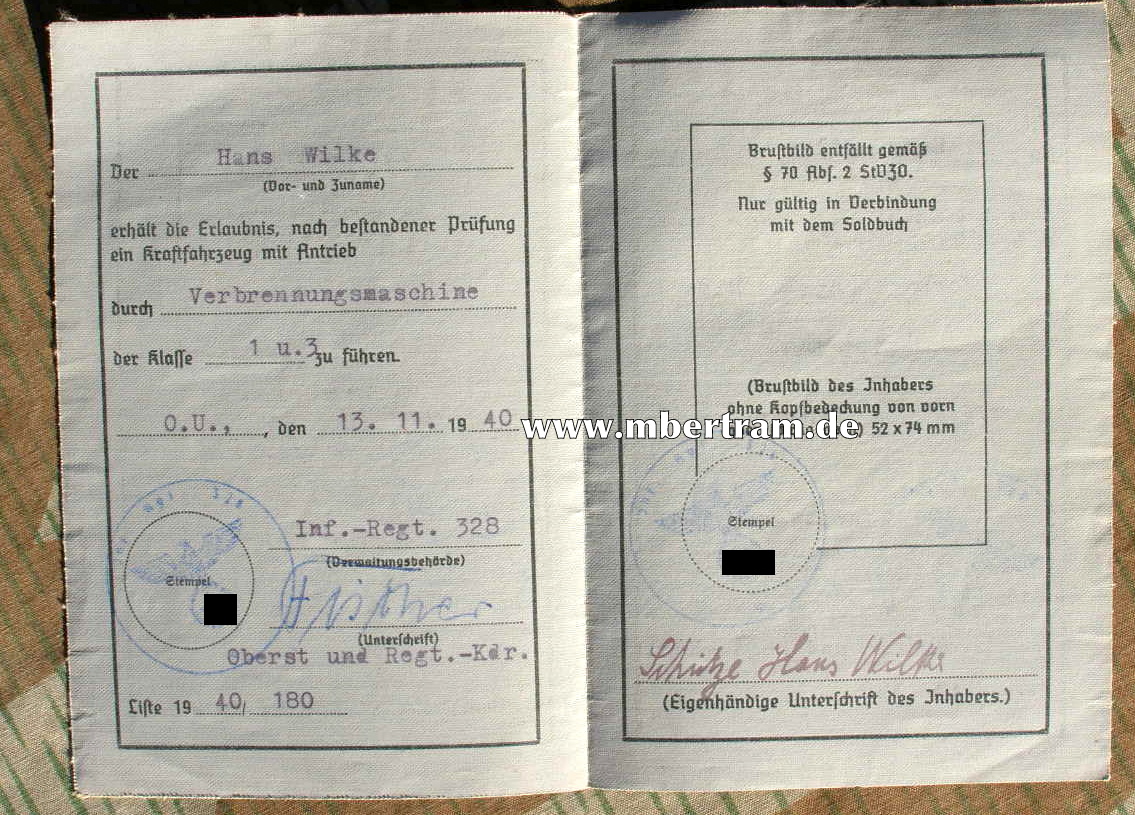 Hans Wilke
Der
(Vor- und Zuname)
erhält die Erlaubnis, nach bestandener Prüfung
ein Kraftfahrzeug mit Antrieb
durch Verbrennungsmaschine
der Klasse 1 u.3 zu führen.
O.U., , den 13. 11. 19 40
Inf.-Regt. 328
(Verwaltungsbehörde)
Stempel
(Unterschrift)
Oberst und Regt.-Kdr.
Liste 19 40/ 180
Brustbild entfällt gemäß
§ 70 Abs. 2 StVZO.
Nur gültig in Verbindung
mit dem Soldbuch
(Brustbild des Inhabers
ohne Kopfbedeckung von vorn
52 x 74 mm
www.mbertram.de
Stempel
Schütze Hans Wilke
(Eigenhändige Unterschrift des Inhabers.)